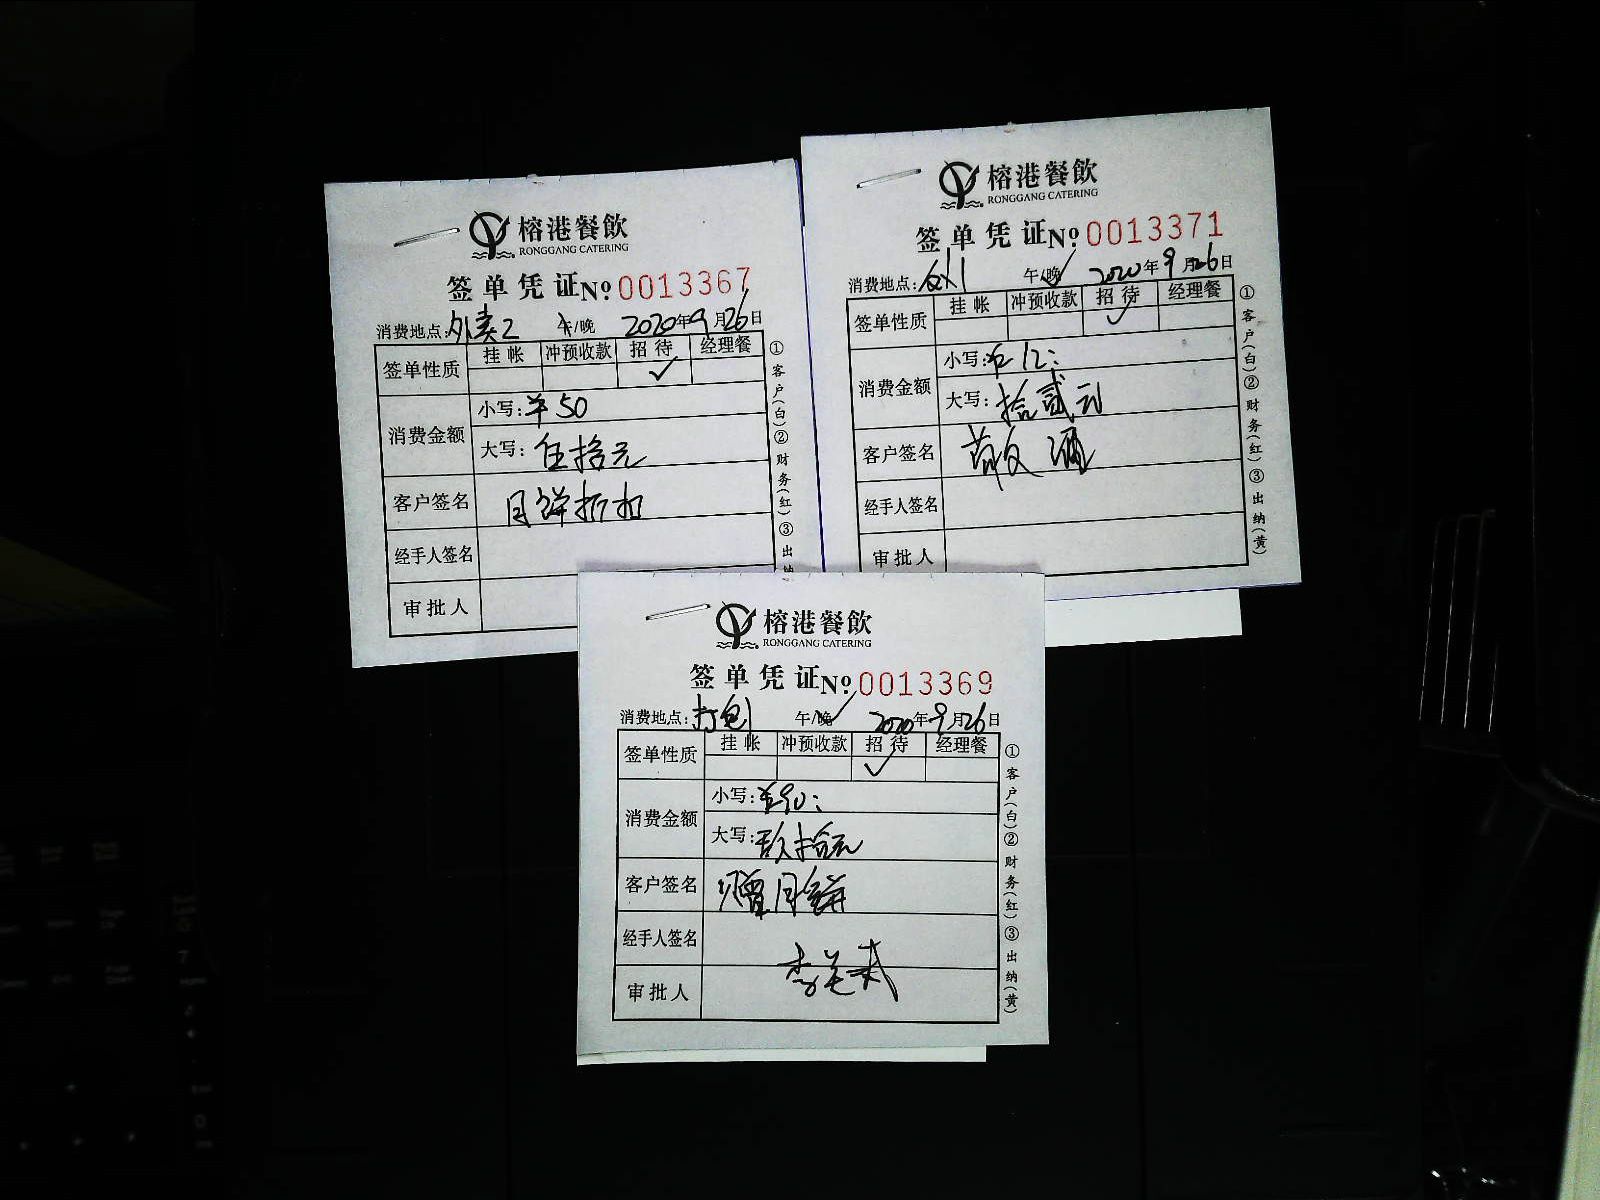 榕港餐飲
RONGGANG CATERING
签单凭证№0013367
消费地点：外卖2 午/晚 2020年9月26日
签单性质 挂帐 冲预收款 招待 经理餐
✓
消费金额 小写：¥50
大写：伍拾元
客户签名 月饼折扣
经手人签名
审批人
①客户(白)②财务(红)③出纳
榕港餐飲
RONGGANG CATERING
签单凭证№0013371
消费地点： 午/晚✓ 2020年9月26日
签单性质 挂帐 冲预收款 招待 经理餐
✓
消费金额 小写：¥12：
大写：拾贰元
客户签名
经手人签名
审批人
①客户(白)②财务(红)③出纳(黄)
榕港餐飲
RONGGANG CATERING
签单凭证№0013369
消费地点：打包1 午/晚✓ 2020年9月26日
签单性质 挂帐 冲预收款 招待 经理餐
✓
消费金额 小写：¥90：
大写：玖拾元
客户签名 赠月饼
经手人签名
审批人
①客户(白)②财务(红)③出纳(黄)